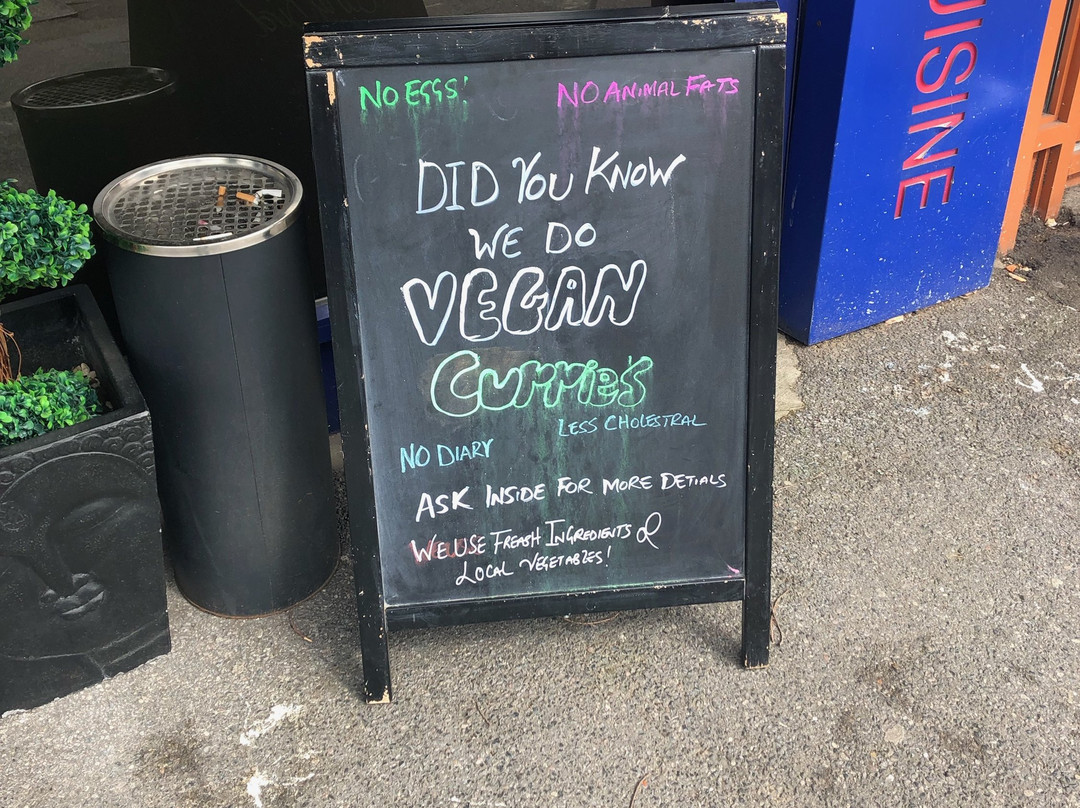 NO EGGS! NO ANIMAL FATS
DID YOU KNOW
WE DO
VEGAN
CURRIE'S
LESS CHOLESTRAL
NO DIARY
ASK INSIDE FOR MORE DETIALS
WE USE FREASH INGREDIENTS &
LOCAL VEGETABLES!
UISINE